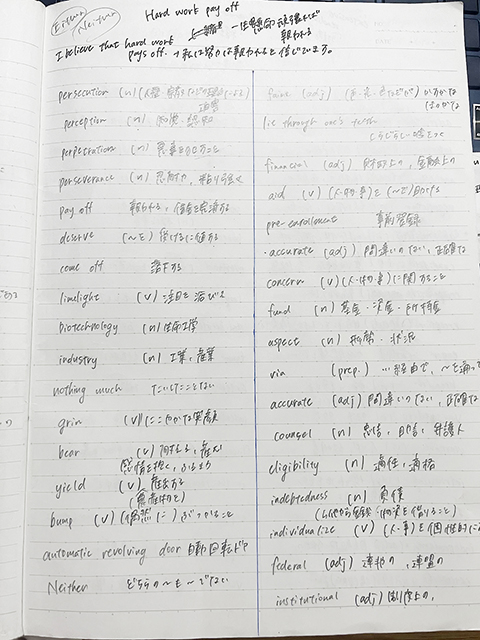 Either
Neither
Hard work pay off
一生懸命頑張れば
報われる
I believe that hard work
pays off.
persecution (n)
perception (n) 知覚、認知
perpetration (n) 悪事を
perseverance (n) 忍耐力、粘り強さ
pay off 報われる、借金を完済する
deserve (〜を) 受けるに値する
come off 落下する
limelight (v) 注目を浴びる
biotechnology (n) 生命工学
industry (n) 工業、産業
nothing much たいしたことない
grin (v) にこやかな笑顔
bear (v)
yield (v) 産出する
(農産物を)
bump (v) (偶然に) ぶつかること
automatic revolving door 自動回転ドア
Neither どちらの〜も〜でない
(adj)
lie through one's teeth
financial (adj) 財政上の、金融上の
aid (v) (人・物・事)を (〜で) 助ける
pre-enrollment 事前登録
・accurate (adj) 間違いのない、正確な
concern (v) (人・物・事) に関すること
fund (n) 基金・資金・所持金
aspect (n) 形勢・状況
via (prep.) …経由で、〜を通って
accurate (adj) 間違いのない、正確な
counsel (n) 忠告、助言、弁護人
eligibility (n) 適任、適格
indebtedness (n) 負債
individualize (v) (人・事) を個性的に
federal (adj) 連邦の、連盟の
institutional (adj) 制度上の、